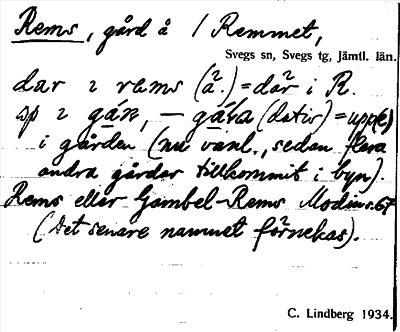 Rems, gård å / Remmet,
Svegs sn, Svegs tg, Jämtl. län.
dar 2 rems (ä.) = där i R.
sp 2 gán, — gáta (dativ) = uppe
i gården (nu vanl., sedan flera
andra gårdar tillkommit i byn).
Rems eller Gambel-Rems Modins. 67
(Det senare namnet förnekas).
C. Lindberg 1934.